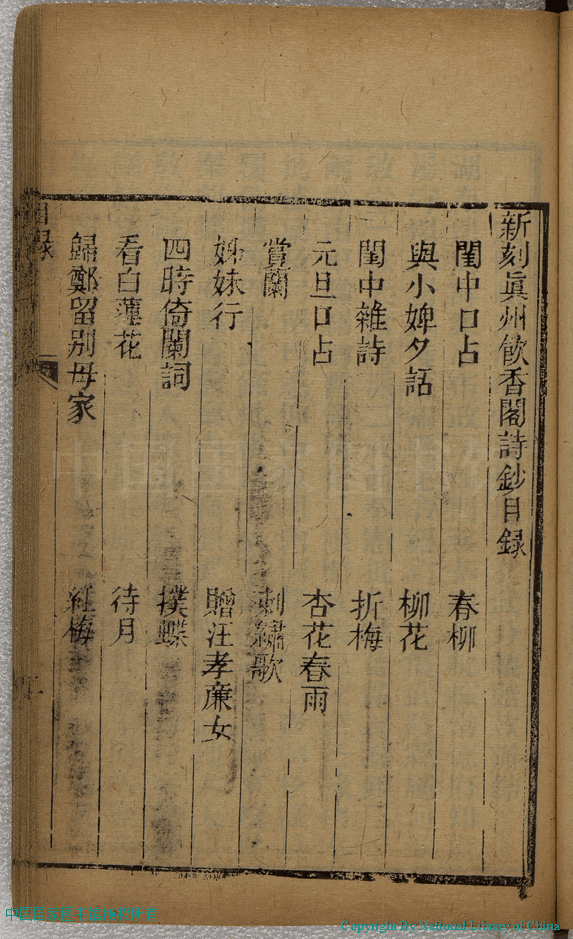 新刻眞州飮香閣詩鈔目録
閨中口占 春柳
與小婢夕話 柳花
閨中雜詩 折梅
元旦口占 杏花春雨
賞蘭 刺繡歌
姊妹行 贈汪孝廉女
四時倚闌詞 撲蝶
看白蓮花 待月
歸鄭留别母家 紅梅
目録
Copyright by National Library of China